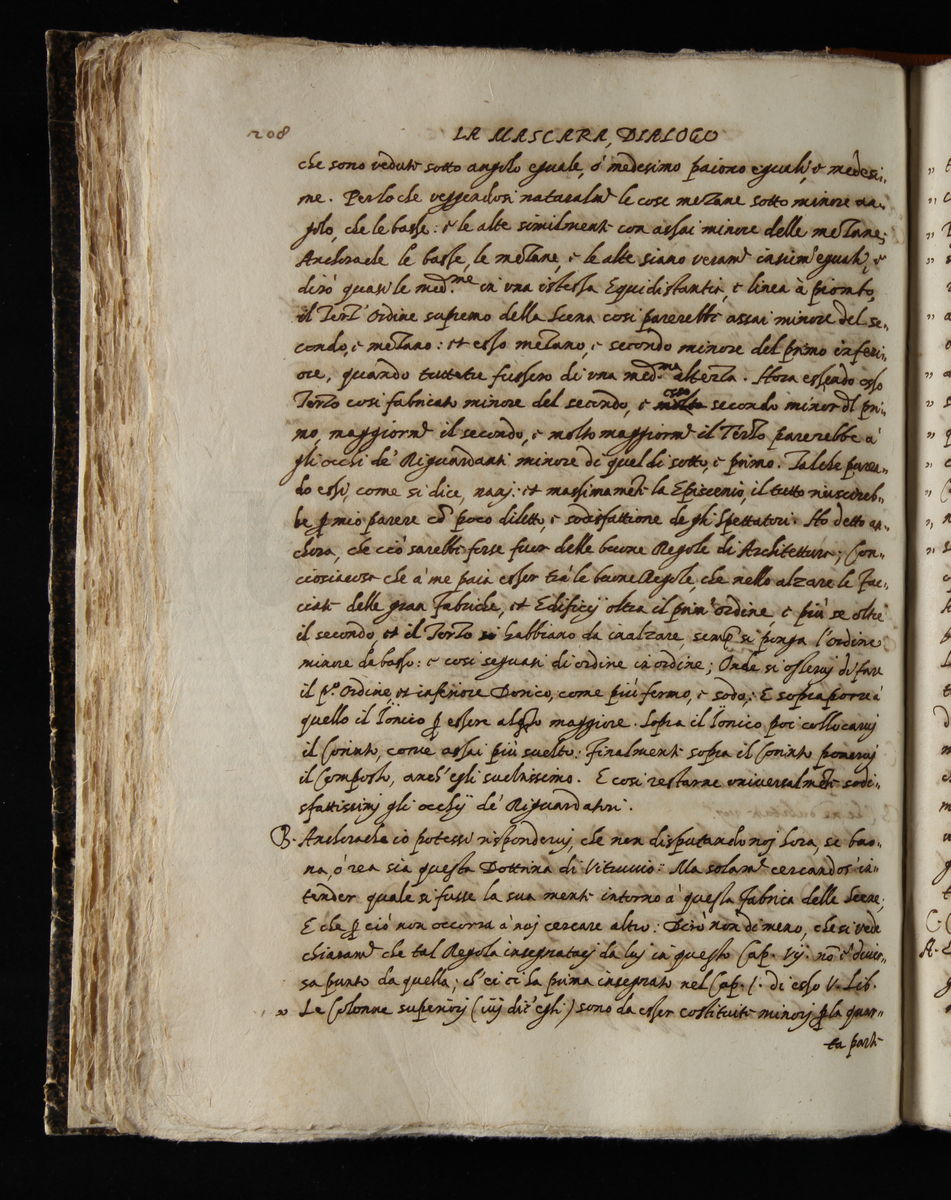 208
LA MASCARA, DIALOGO
che sono vedute sotto angolo eguale, ò medesimo paiono eguali, e medesi-
me. Perloche veggendosi naturalm.e le cose mezane sotto minore an-
golo, che le basse: e le alte similmente con assai minore delle mezane;
Anchorache le basse, le mezane, e le alte siano veram.e insiem' eguali, e
dirò quasi le med.me in una istessa Equidistantia, e linea à piombo,
il Terz' Ordine supremo della Scena cosi parerebbe assai minore del se-
condo, e mezano: et esso mezano, e secondo minore del primo inferi-
ore, quando tutte tre fussero di una med.ma altezza. Hora essendo esso
Terzo cosi fabricato minore del secondo, e esso secondo minor dl pri-
mo, maggiorm.e il secondo, e molto maggiorm.e il Terzo parerebbe à
gli occhi de' Riguardanti minore di quel di sotto, e primo. Talche paren-
do essi, come si dice, nani: et massimamente la Episcenio, il tutto riuscireb-
be p mio parere cō poco diletto, e sodisfattione de gli Spettatori. Ho detto an-
chora, che ciò sarebbe forse fuor delle buone Regole di Architettura; Con-
ciosiacosa che à me paia esser trà le buone Regole, che nello alzare le Fac-
ciate delle gran Fabriche, et Edificij oltra il prim' ordine, e più se oltre
il secondo, et il Terzo si habbiano da inalzare, semp si ponga l'ordine
minore da basso: e cosi seguasi di ordine in ordine; Onde si osservi di fare
il p.o Ordine, et inferiore Dorico, come più fermo, e sodo: E sopraporre à
quello il Ionico p essere alqto maggiore. Sopra il Ionico poi collocarvj
il Corinto, come assai più svelto: finalmente sopra il Corinto ponervj
il Composto, anch' egli sveltissimo. E cosi restarne universalmente sodi-
sfattissimj gli occhij de' Riguardatori.
B. Anchorache io potessi rispondervj, che non disputando noj hora, se buo-
na, ò rea sia questa Dottrina di Vitruvio: Ma solam.e cercando s' in-
tender quale si fusse la sua mente intorno à questa Fabrica delle Scene;
E che p ciò non occorra à noj cercare altro: Dirò nondimeno, che si vede
chiaram.e che tal Regola insegnataci da luj in questo Cap. Vij. nō è diver-
sa punto da quella, ch' ei ci ha prima insegnato nel Cap. I. di esso V. Lib.
" Le Colonne superiorj (ivj dic' egli) sono da esser costituite minorj p la quar-
ta parte